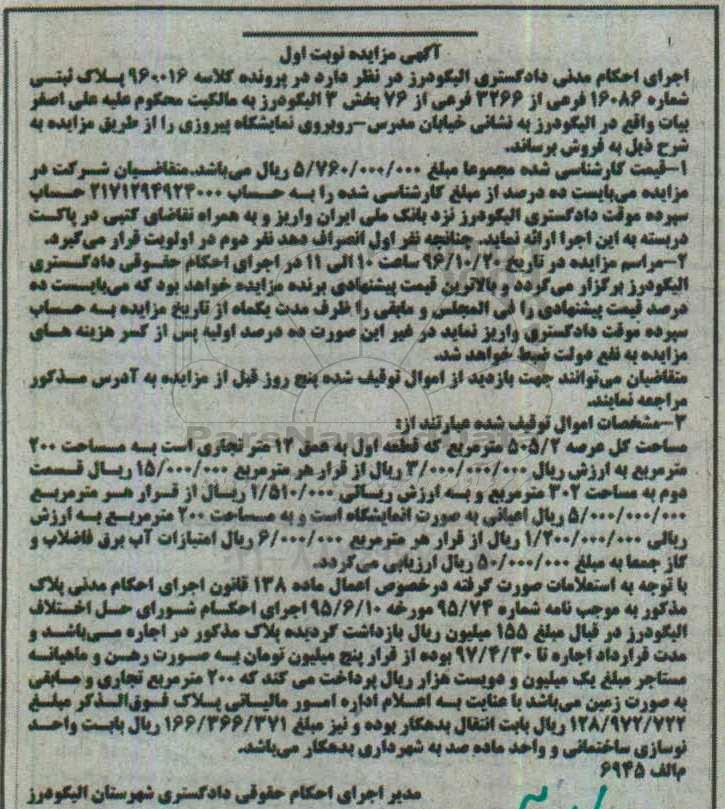 آگهی مزایده نوبت اول
اجرای احکام مدنی دادگستری الیگودرز در نظر دارد در پرونده کلاسه ۹۶۰۰۱۶ پلاک ثبتی
شماره ۱۶۰۸۶ فرعی از ۳۲۶۶ فرعی از ۷۶ بخش ۳ الیگودرز به مالکیت محکوم علیه علی اصغر
بیات واقع در الیگودرز به نشانی خیابان مدرس-روبروی نمایشگاه پیروزی را از طریق مزایده به
شرح ذیل به فروش برساند.
۱-قیمت کارشناسی شده مجموعا مبلغ ۵/۷۶۰/۰۰۰/۰۰۰ ریال می‌باشد.متقاضیان شرکت در
مزایده می‌بایست ده درصد از مبلغ کارشناسی شده را به حساب ۲۱۷۱۲۹۴۹۲۳۰۰۰ حساب
سپرده موقت دادگستری الیگودرز نزد بانک ملی ایران واریز و به همراه تقاضای کتبی در پاکت
دربسته به این اجرا ارائه نماید. چنانچه نفر اول انصراف دهد نفر دوم در اولویت قرار می‌گیرد.
۲-مراسم مزایده در تاریخ ۹۶/۱۰/۲۰ ساعت ۱۰ الی ۱۱ در اجرای احکام حقوقی دادگستری
الیگودرز برگزار می‌گردد و بالاترین قیمت پیشنهادی برنده مزایده خواهد بود که می‌بایست ده
درصد قیمت پیشنهادی را فی المجلس و مابقی را ظرف مدت یکماه از تاریخ مزایده به حساب
سپرده موقت دادگستری واریز نماید در غیر این صورت ده درصد اولیه پس از کسر هزینه های
مزایده به نفع دولت ضبط خواهد شد.
متقاضیان می‌توانند جهت بازدید از اموال توقیف شده پنج روز قبل از مزایده به آدرس مذکور
مراجعه نمایند.
۳-مشخصات اموال توقیف شده عبارتند از:
مساحت کل عرصه ۵۰۵/۲ مترمربع که قطعه اول به عمق ۱۲ متر تجاری است به مساحت ۲۰۰
مترمربع به ارزش ریال ۳/۰۰۰/۰۰۰/۰۰۰ ریال از قرار هر مترمربع ۱۵/۰۰۰/۰۰۰ ریال قسمت
دوم به مساحت ۳۰۲ مترمربع و به ارزش ریالی ۱/۵۱۰/۰۰۰ ریال از قرار هر مترمربع
۵/۰۰۰/۰۰۰/۰۰۰ ریال اعیانی به صورت انمایشگاه است و به مساحت ۲۰۰ مترمربع به ارزش
ریالی ۱/۲۰۰/۰۰۰/۰۰۰ ریال از قرار هر مترمربع ۶/۰۰۰/۰۰۰ ریال امتیازات آب برق فاضلاب و
گاز جمعا به مبلغ ۵۰/۰۰۰/۰۰۰ ریال ارزیابی می‌گردد.
با توجه به استعلامات صورت گرفته درخصوص اعمال ماده ۱۳۸ قانون اجرای احکام مدنی پلاک
مذکور به موجب نامه شماره ۹۵/۷۴ مورخه ۹۵/۶/۱۰ اجرای احکام شورای حل اختلاف
الیگودرز در قبال مبلغ ۱۵۵ میلیون ریال بازداشت گردیده پلاک مذکور در اجاره می‌باشد و
مدت قرارداد اجاره تا ۹۷/۴/۳۰ بوده از قرار پنج میلیون تومان به صورت رهن و ماهیانه
مستاجر مبلغ یک میلیون و دویست هزار ریال پرداخت می کند که ۲۰۰ مترمربع تجاری و مابقی
به صورت زمین می‌باشد با عنایت به اعلام اداره امور مالیاتی پلاک فوق‌الذکر مبلغ
۱۲۸/۹۷۲/۷۲۲ ریال بابت انتقال بدهکار بوده و نیز مبلغ ۱۶۶/۳۶۶/۳۷۱ ریال بابت واحد
نوسازی ساختمانی و واحد ماده صد به شهرداری بدهکار می‌باشد.
م‌الف ۶۹۴۵
مدیر اجرای احکام حقوقی دادگستری شهرستان الیگودرز
ParsNamadData